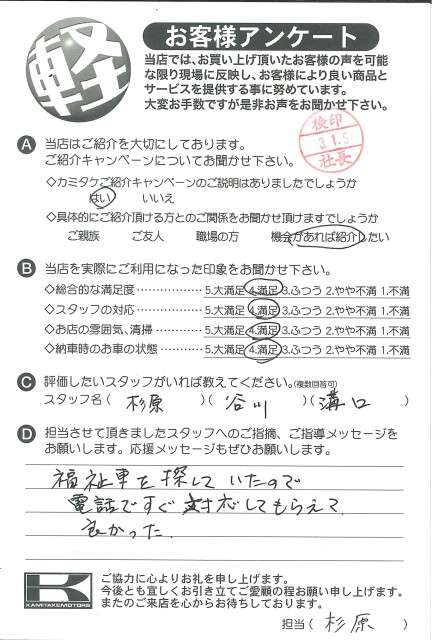 軽
お客様アンケート
当店では、お買い上げ頂いたお客様の声を可能
な限り現場に反映し、お客様により良い商品と
サービスを提供する事に努めています。
大変お手数ですが是非お声をお聞かせ下さい。
検印
3.1.5
社長
A 当店はご紹介を大切にしております。
ご紹介キャンペーンについてお聞かせ下さい。
◇カミタケご紹介キャンペーンのご説明はありましたでしょうか
はい いいえ
◇具体的にご紹介頂ける方とのご関係をお聞かせ頂けますでしょうか
ご親族 ご友人 職場の方 機会があれば紹介したい
B 当店を実際にご利用になった印象をお聞かせ下さい。
◇総合的な満足度 ……………… 5.大満足 4.満足 3.ふつう 2.やや不満 1.不満
◇スタッフの対応 ……………… 5.大満足 4.満足 3.ふつう 2.やや不満 1.不満
◇お店の雰囲気、清掃 ………… 5.大満足 4.満足 3.ふつう 2.やや不満 1.不満
◇納車時のお車の状態 ………… 5.大満足 4.満足 3.ふつう 2.やや不満 1.不満
C 評価したいスタッフがいれば教えてください。(複数回答可)
スタッフ名( 杉原 )( 谷川 )( 溝口 )
D 担当させて頂きましたスタッフへのご指摘、ご指導メッセージを
お願いします。応援メッセージもぜひお願いします。
福祉車を探していたので
電話ですぐ対応してもらえて
良かった.
K
KAMITAKEMOTORS
ご協力に心よりお礼を申し上げます。
今後とも宜しくお引き立てご愛顧の程お願い申し上げます。
またのご来店を心からお待ちしております。
担当( 杉原 )